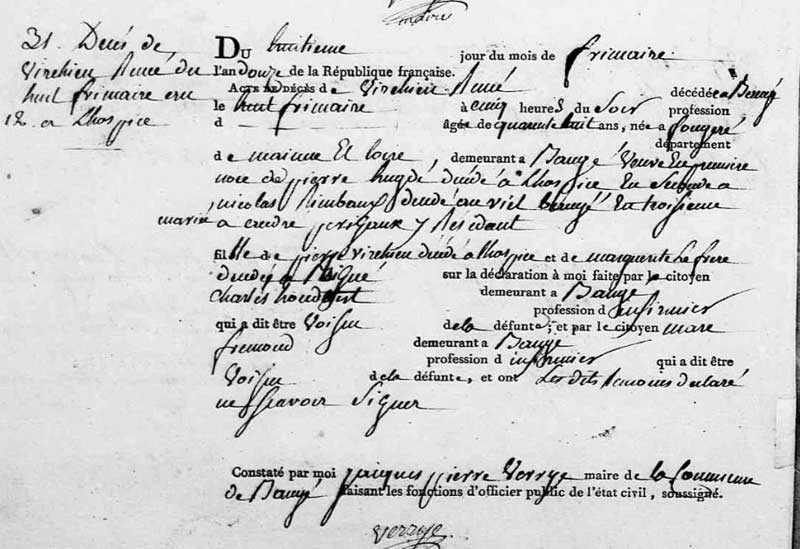 maire
31. Decés de
Virehien Renée du
huit frimaire an
12. a Lhospice
DU huitieme jour du mois de frimaire
l'an douze de la République française.
ACTE DE DÉCÈS de Virehien Renée décédée a Baugé
le huit frimaire à cinq heures du Soir profession
d âgée de quarante huit ans, née a fougeré
département
de mainne Et loire, demeurant a Baugé Veuve En premiere
noce de pierre hugdé décédé a Lhospice En Seconde a
nicolas Rimbaux décédé au viel baugé En troisieme
marié a andre perigaux y Résidant
fille de pierre Virehien décédé a lhospice et de marguerite Le frere
décédée a sur la déclaration à moi faite par le citoyen
Charles demeurant a Baugé
profession d infirmier
qui a dit être Voisin de la défunte; et par le citoyen marc
fremond demeurant a Baugé
profession d infirmier qui a dit être
Voisin de la défunte, et ont Les dits temoins declaré
ne Scavoir Signer
Constaté par moi jacques pierre Verrye maire de la Commune
de Baugé faisant les fonctions d'officier public de l'état civil, soussigné.
Verrye